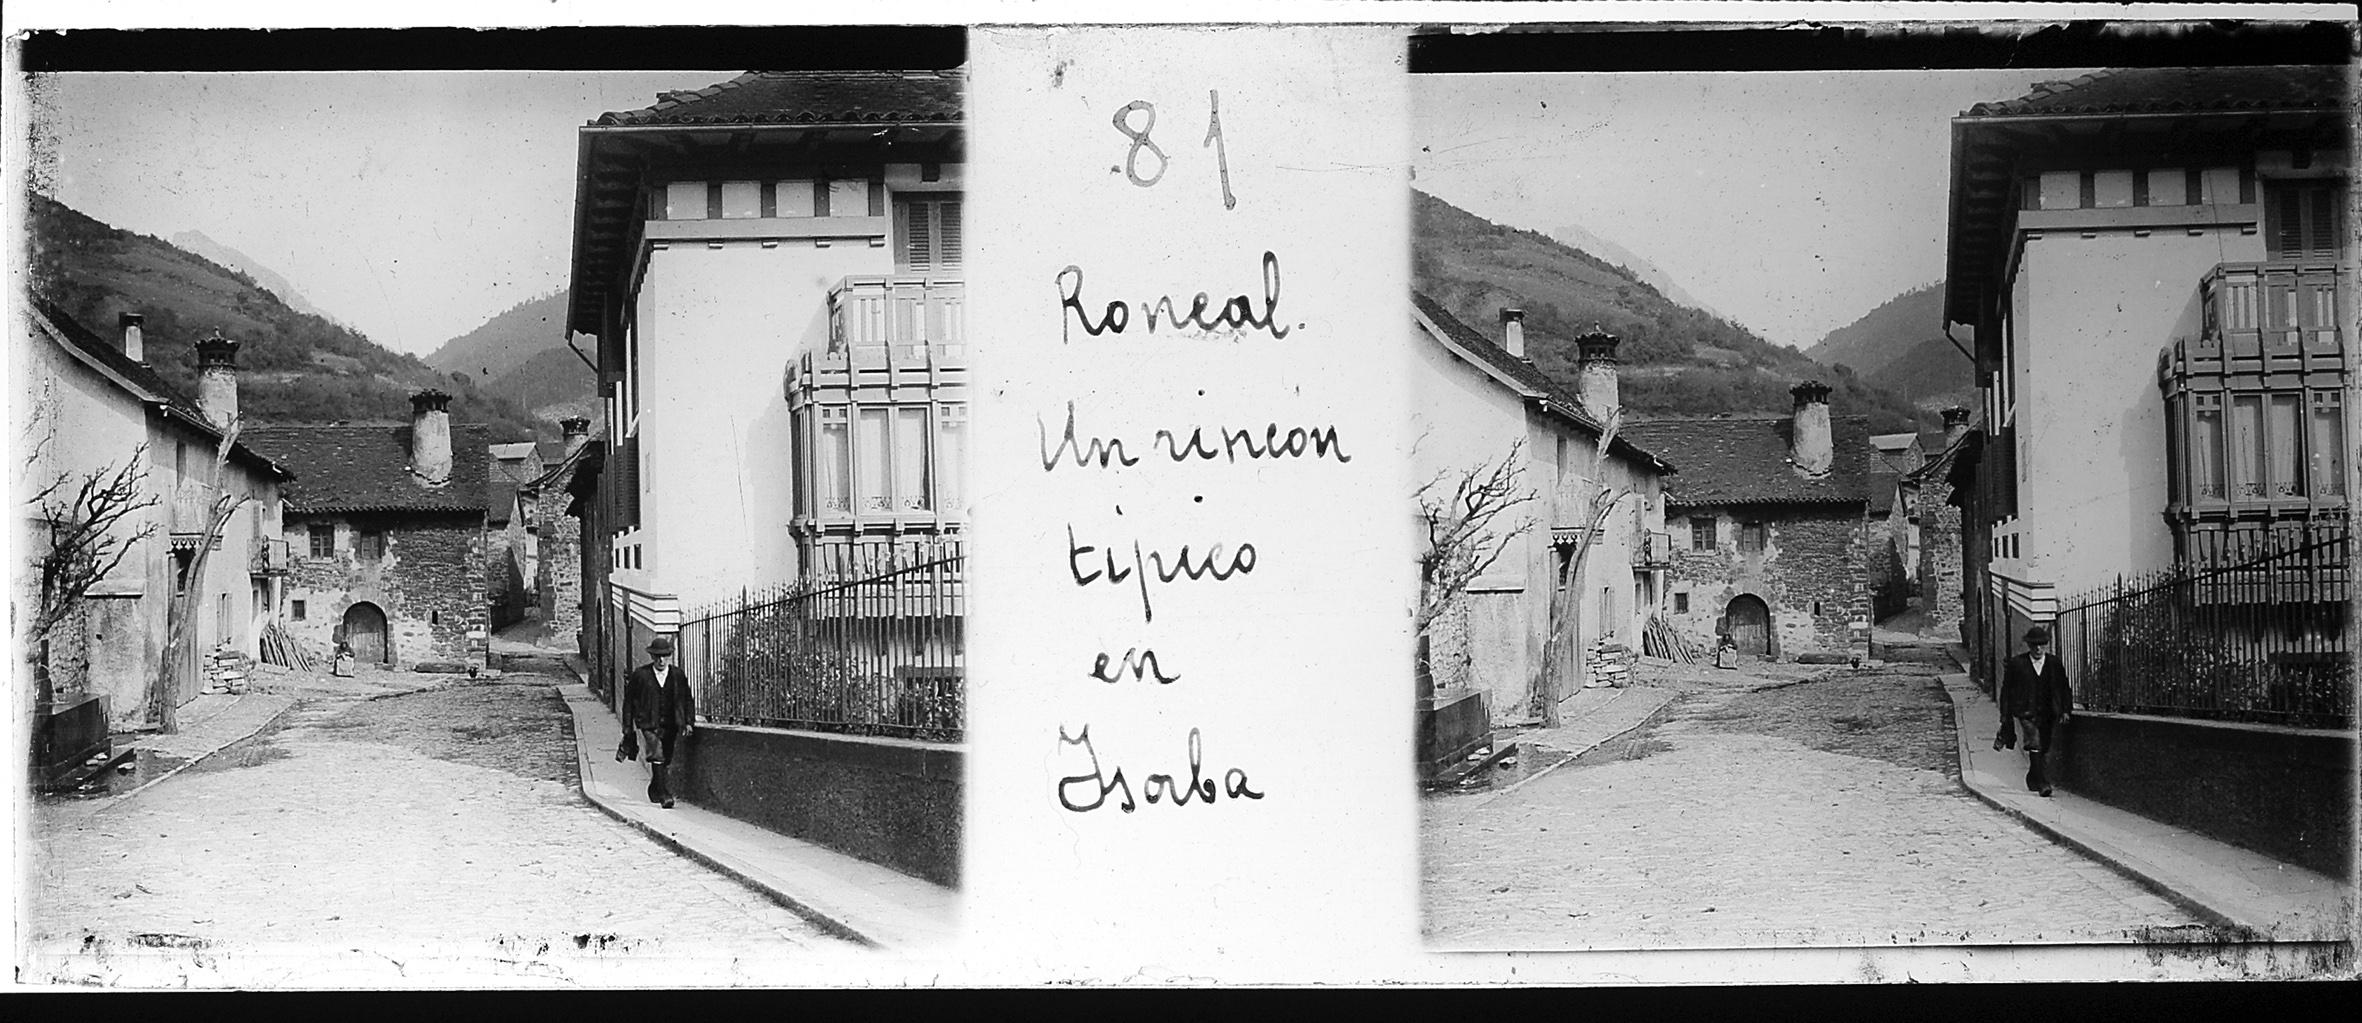 81
Roncal.
Un rincón
típico
en
Isorba